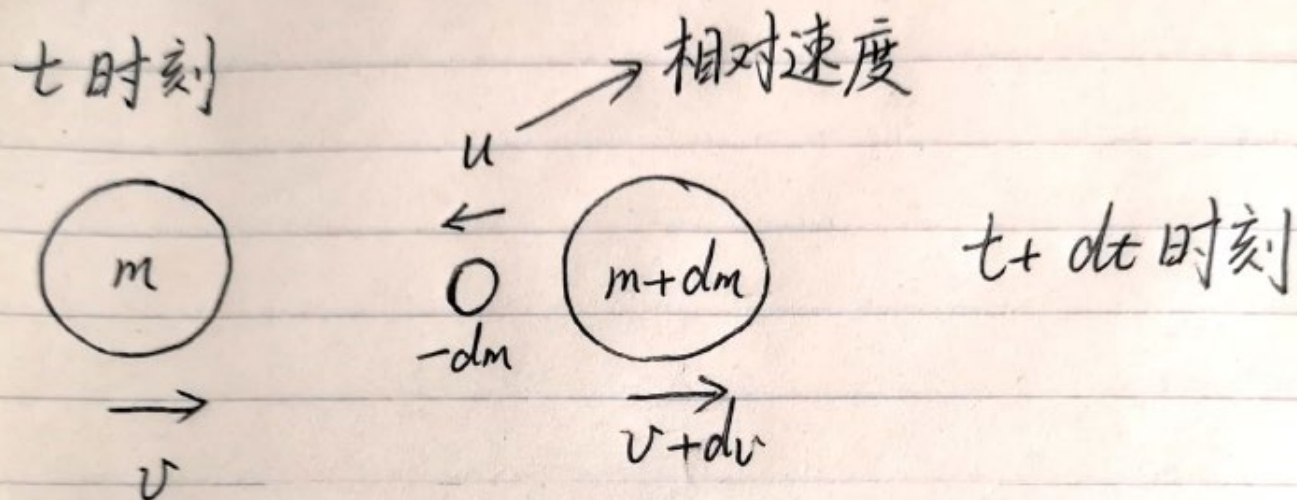 t时刻
相对速度
u
m
-dm
m+dm
t+dt时刻
v
v+dv